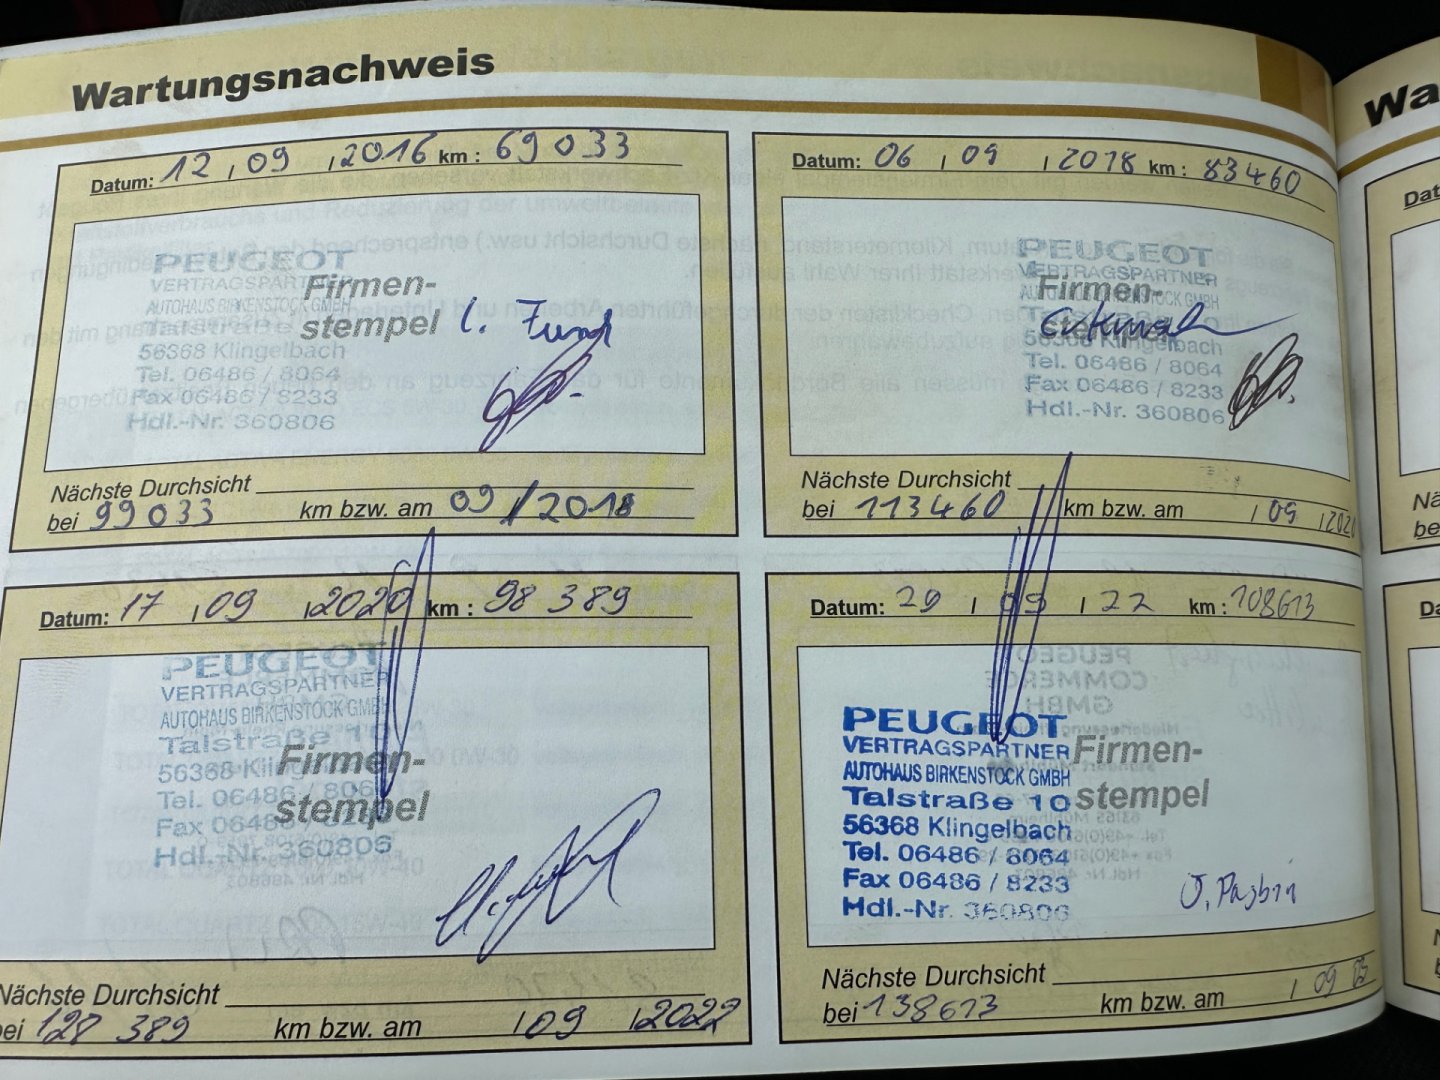 Wartungsnachweis
Datum: 12 , 09 , 2016 km : 69 033
PEUGEOT
VERTRAGSPARTNER
AUTOHAUS BIRKENSTOCK GMBH
Talstraße
56368 Klingelbach
Tel. 06486 / 8064
Fax 06486 / 8233
Hdl.-Nr. 360806
Firmen-
stempel
Nächste Durchsicht
bei 99 033 km bzw. am 09 / 2018
Datum: 06 , 09 , 2018 km : 83460
PEUGEOT
VERTRAGSPARTNER
GMBH
Firmen-
56368 Klingelbach
Tel. 06486 / 8064
Fax 06486 / 8233
Hdl.-Nr. 360806
Nächste Durchsicht
bei 113460 km bzw. am , 09 , 2020
Datum: 17 , 09 , 2020 km : 98 389
PEUGEOT
VERTRAGSPARTNER
AUTOHAUS BIRKENSTOCK GMBH
Talstraße 10
56368
Tel. 06486 / 806
Fax 06486
Hdl.-Nr. 360806
Firmen-
stempel
Nächste Durchsicht
ei 128 389 km bzw. am , 09 , 2022
Datum: 29 , 09 , 22 km : 108613
PEUGEOT
VERTRAGSPARTNER
AUTOHAUS BIRKENSTOCK GMBH
Talstraße 10
56368 Klingelbach
Tel. 06486 / 8064
Fax 06486 / 8233
Hdl.-Nr. 360806
Firmen-
stempel
Nächste Durchsicht
bei 138613 km bzw. am , 09
Wa
Dat
Nä
be
Da